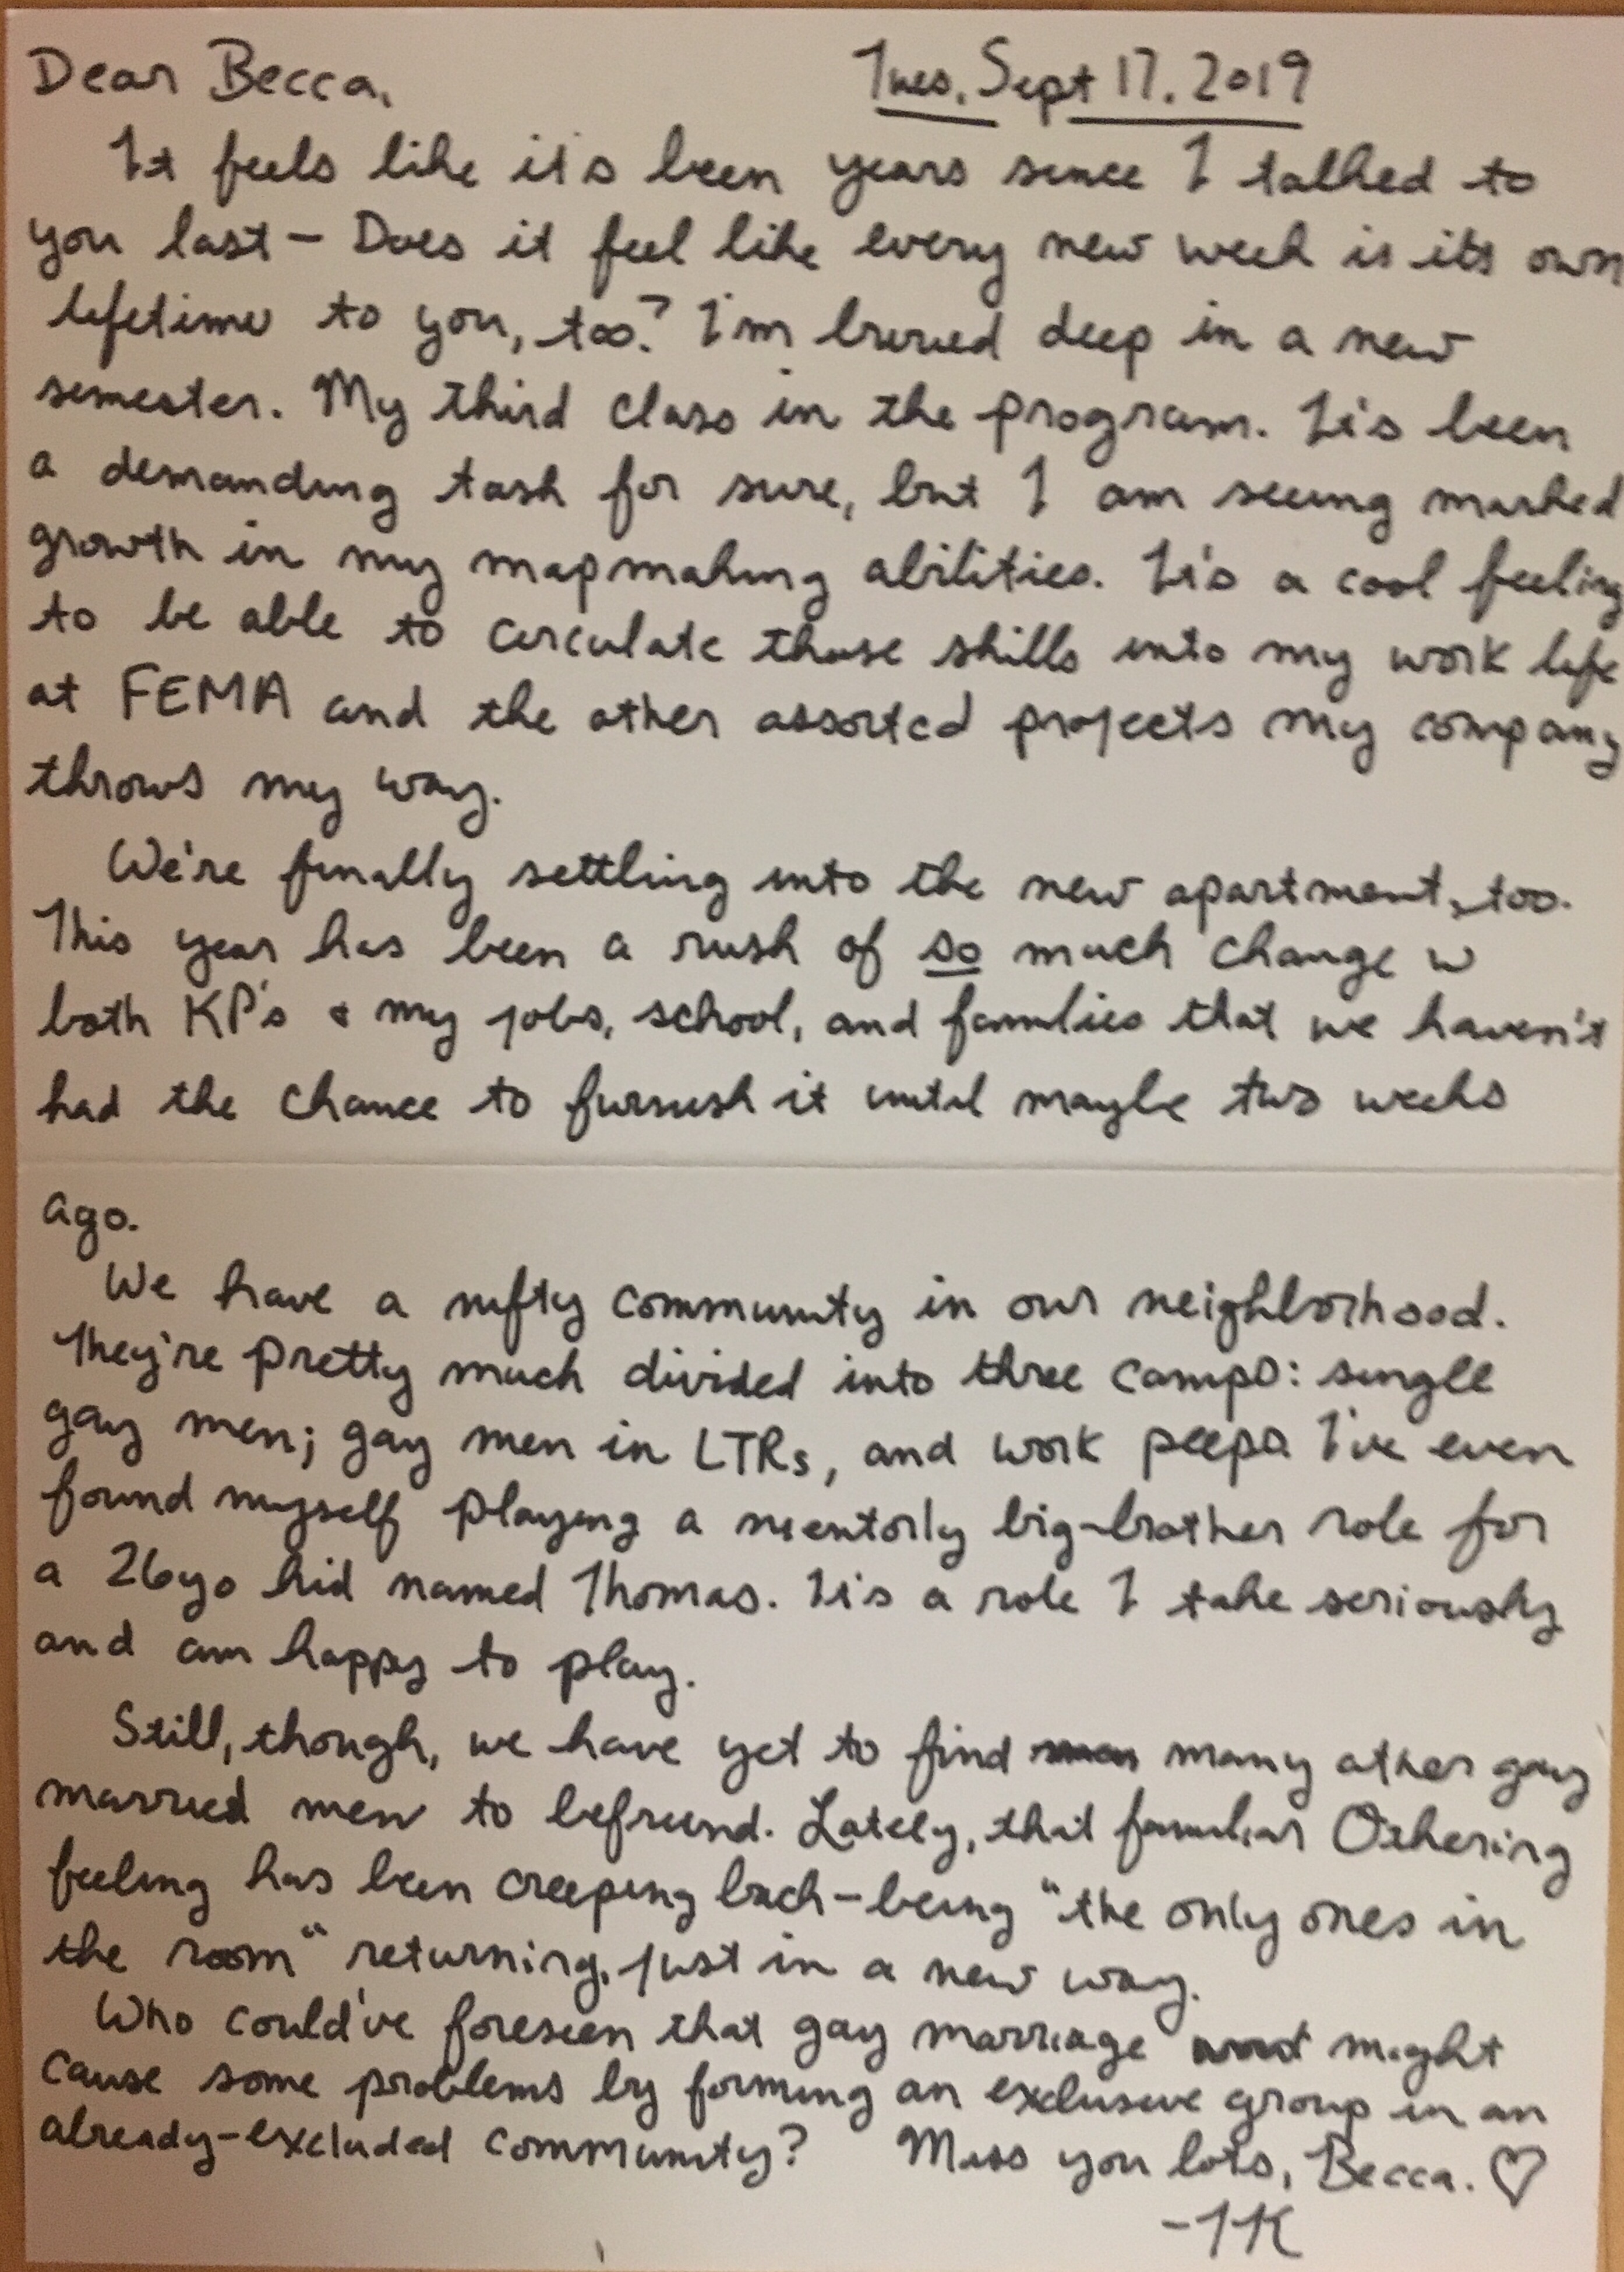 Dear Becca, Tues, Sept 17, 2019
It feels like it's been years since I talked to
you last – Does it feel like every new week is its own
lifetime to you, too? I'm buried deep in a new
semester. My third class in the program. It's been
a demanding task for sure, but I am seeing marked
growth in my mapmaking abilities. It's a cool feeling
to be able to circulate those skills into my work life
at FEMA and the other assorted projects my company
throws my way.
We're finally settling into the new apartment, too.
This year has been a rush of so much change w
both KP's & my jobs, school, and families that we haven't
had the chance to furnish it until maybe two weeks
ago.
We have a nifty community in our neighborhood.
They're pretty much divided into three camps: single
gay men; gay men in LTRs, and work peeps. I've even
found myself playing a mentorly big-brother role for
a 26yo kid named Thomas. It's a role I take seriously
and am happy to play.
Still, though, we have yet to find many other gay
married men to befriend. Lately, that familiar Othering
feeling has been creeping back – being "the only ones in
the room" returning, just in a new way.
Who could've foreseen that gay marriage might
cause some problems by forming an exclusive group in an
already-excluded community? Miss you lots, Becca. ♡
-TK